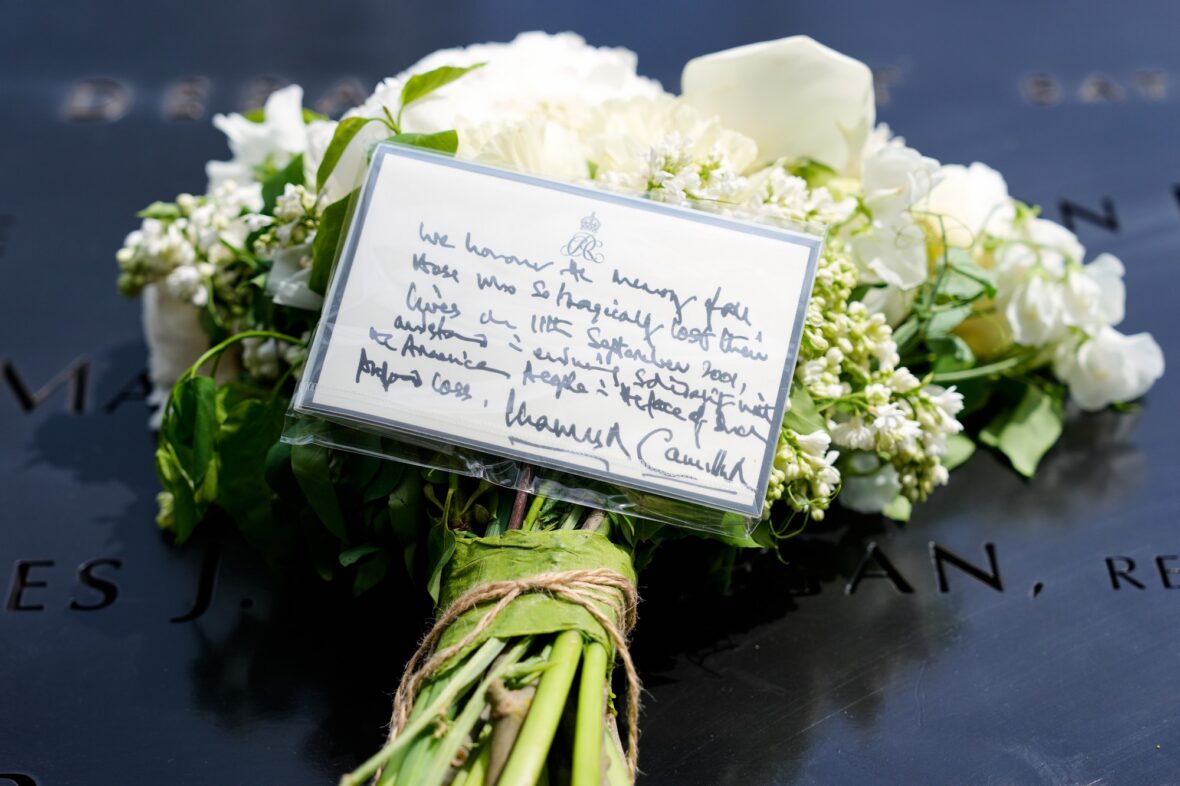 DE
We honour the memory of all
those who so tragically lost their
lives on 11th September 2001,
and stand in enduring solidarity with
the American People in the face of their
profound loss.
Charles R Camilla R
N
MA
ES J.
AN, RE